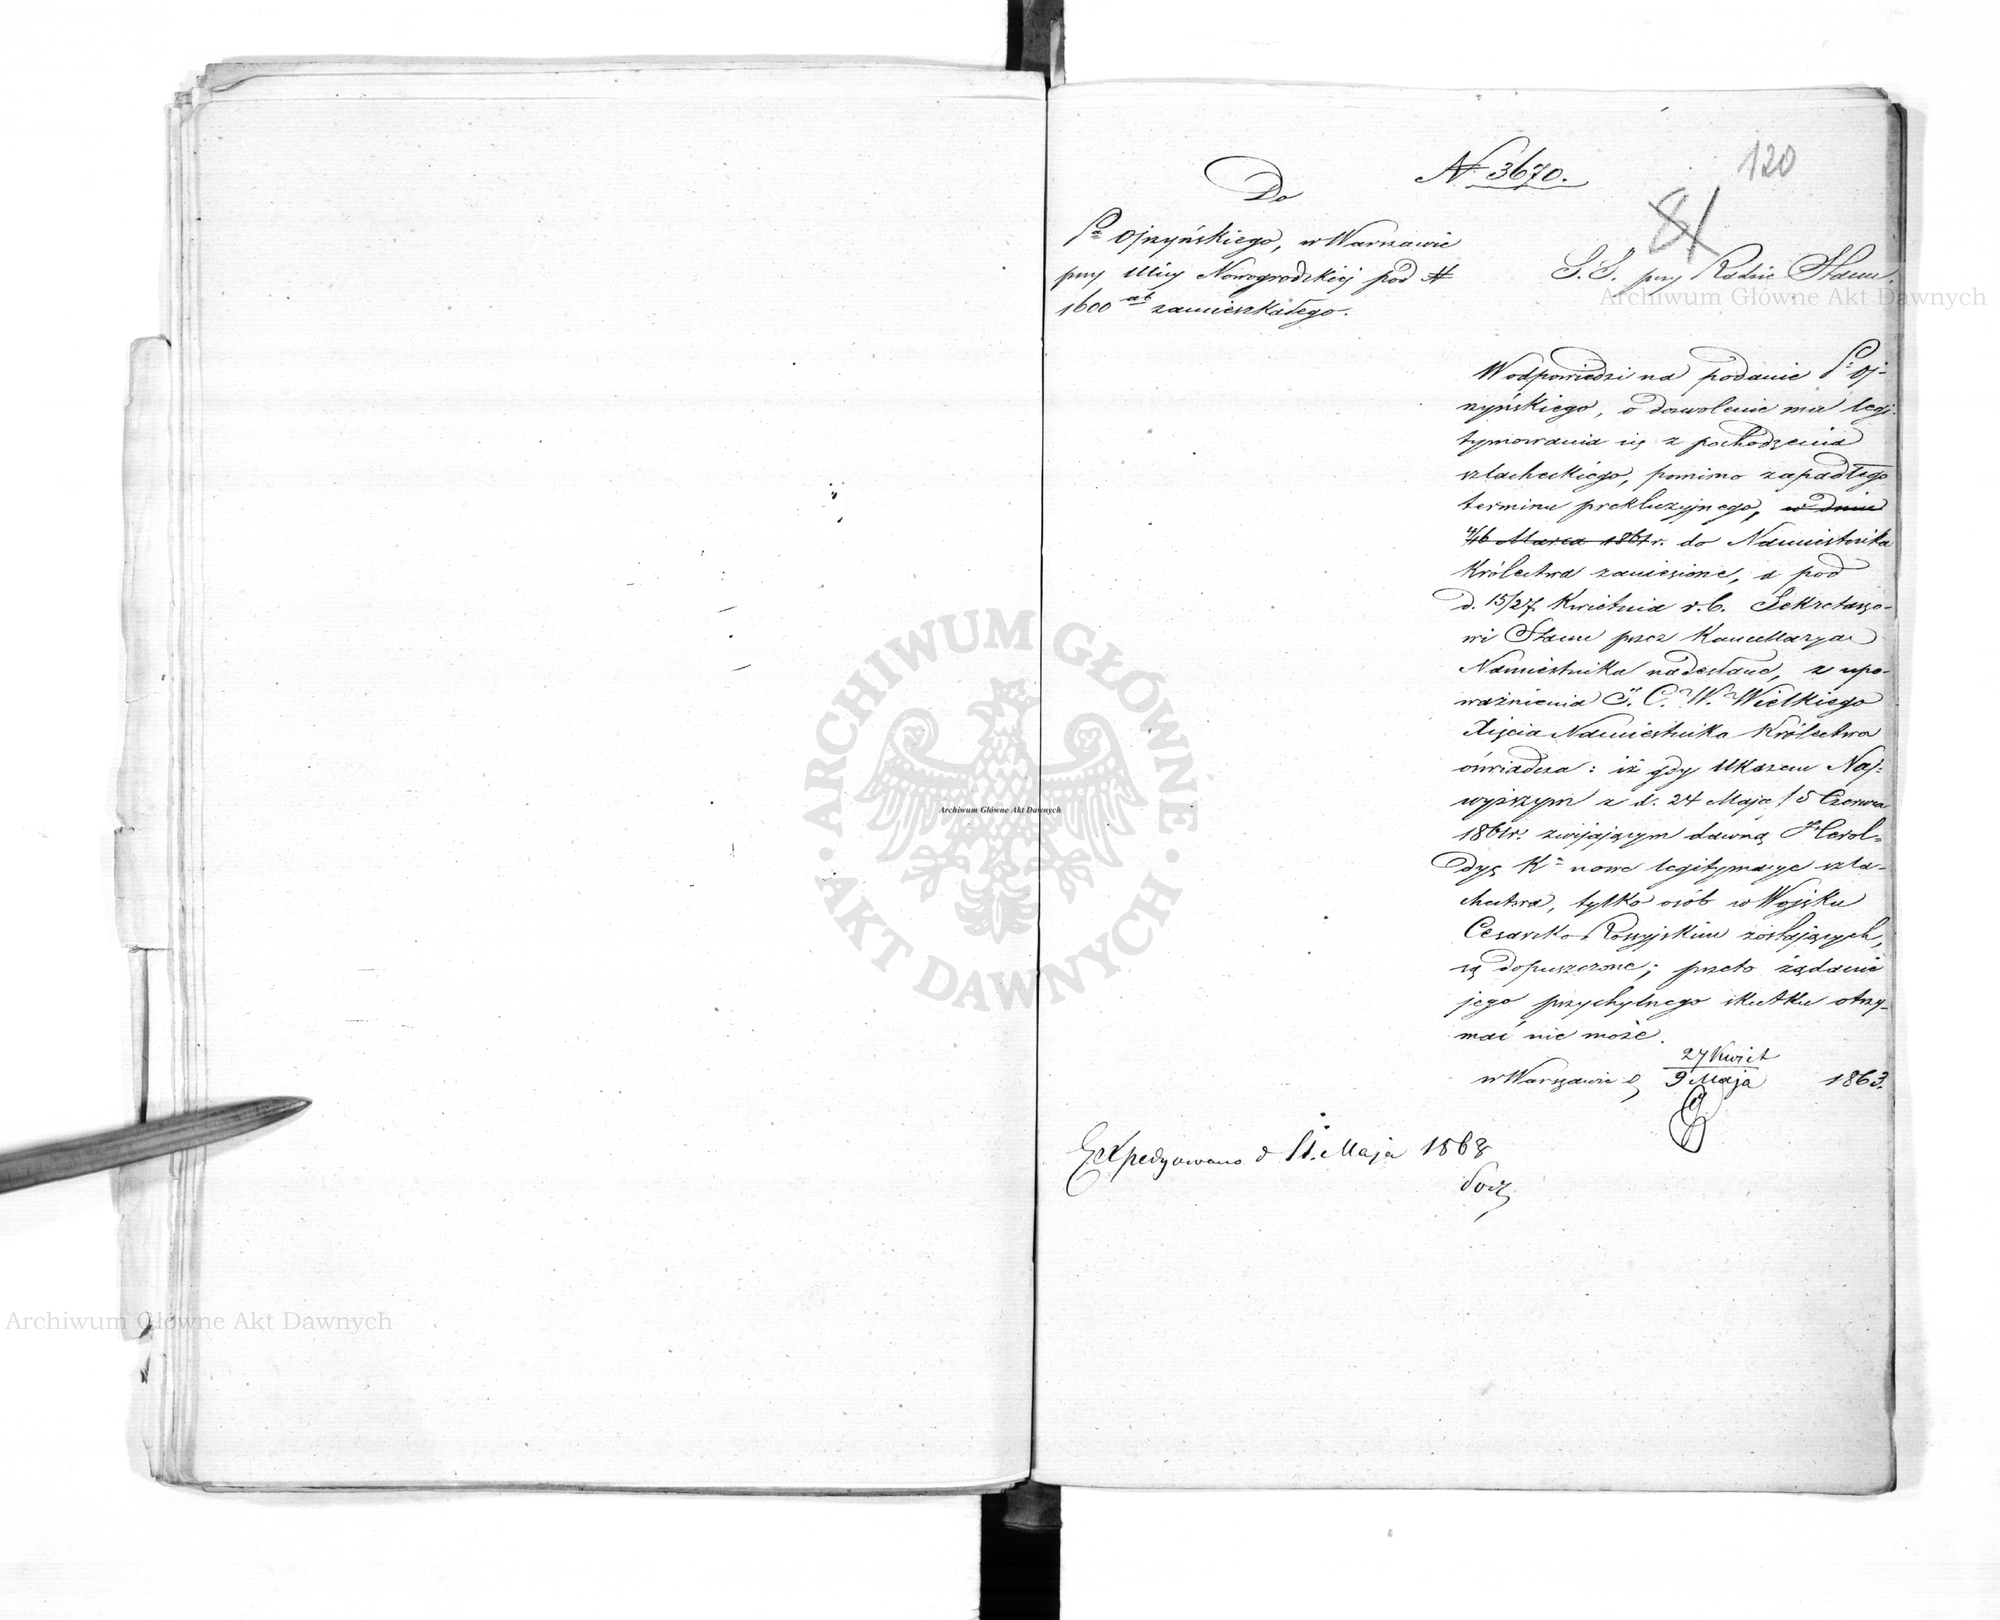 120
N 3670.
81
Do
Pa Ojrzyńskiego, w Warszawie
przy Ulicy Nowogrodzkiej pod N
1600 ab zamieszkałego.
S. S. przy Radzie Stanu.
W odpowiedzi na podanie Pa Oj-
rzyńskiego, o dozwolenie mu legi-
tymowania się z pochodzenia
szlacheckiego, pomimo zapadłego
terminu prekluzyjnego, w dniu
4/16 Marca 1861 r. do Namiestnika
Królestwa zaniesione, a pod
d. 15/27 Kwietnia r.b. Sekretarzo-
wi Stanu przez Kancellaryą
Namiestnika nadesłane, z upo-
ważnienia J. C. W. Wielkiego
Xięcia Namiestnika Królestwa
oświadcza: iż gdy Ukazem Naj-
wyższym z d. 24 Maja / 5 Czerwca
1861r. zwijającym dawną Herol-
dyę Ka nowe legitymacye szla-
chectwa, tylko osób w Wojsku
Cesarsko Rossyjskim zostających,
są dopuszczone; przeto żądanie
jego przychylnego skutku otrzy-
mać nie może.
w Warszawie d 27 Kwiet / 9 Maja 1863.
Expedyowano d 11. Maja 1863
Archiwum Główne Akt Dawnych
ARCHIWUM GŁÓWNE
AKT DAWNYCH
Archiwum Główne Akt Dawnych
Archiwum Główne Akt Dawnych